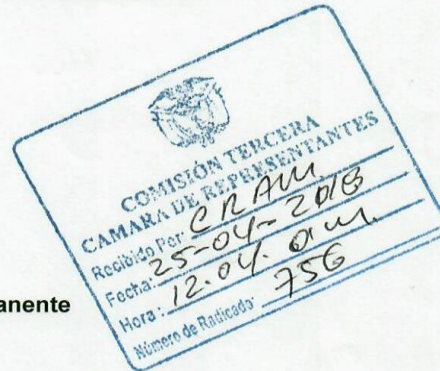 COMISIÓN TERCERA
CAMARA DE REPRESENTANTES
Recibido Por: CRAM.
Fecha: 25-04-2018
Hora: 12.04. a.m.
Número de Radicado: 756
anente